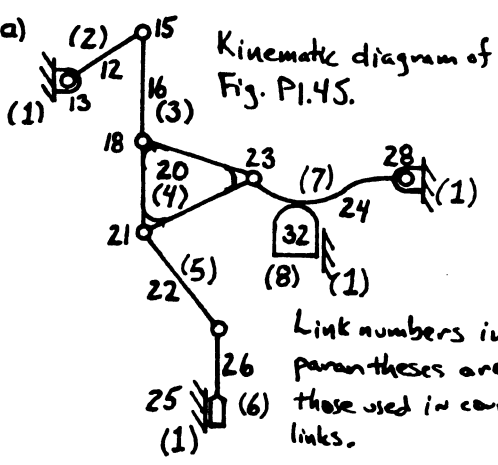 a)
(2)
15
Kinematic diagram of
Fig. P1.45.
12
13
(1)
16
(3)
18
20
(4)
23
(7)
28
(1)
24
21
32
(8)
(1)
22
(5)
26
25
(6)
(1)
Link numbers in
parantheses are
those used in
links.